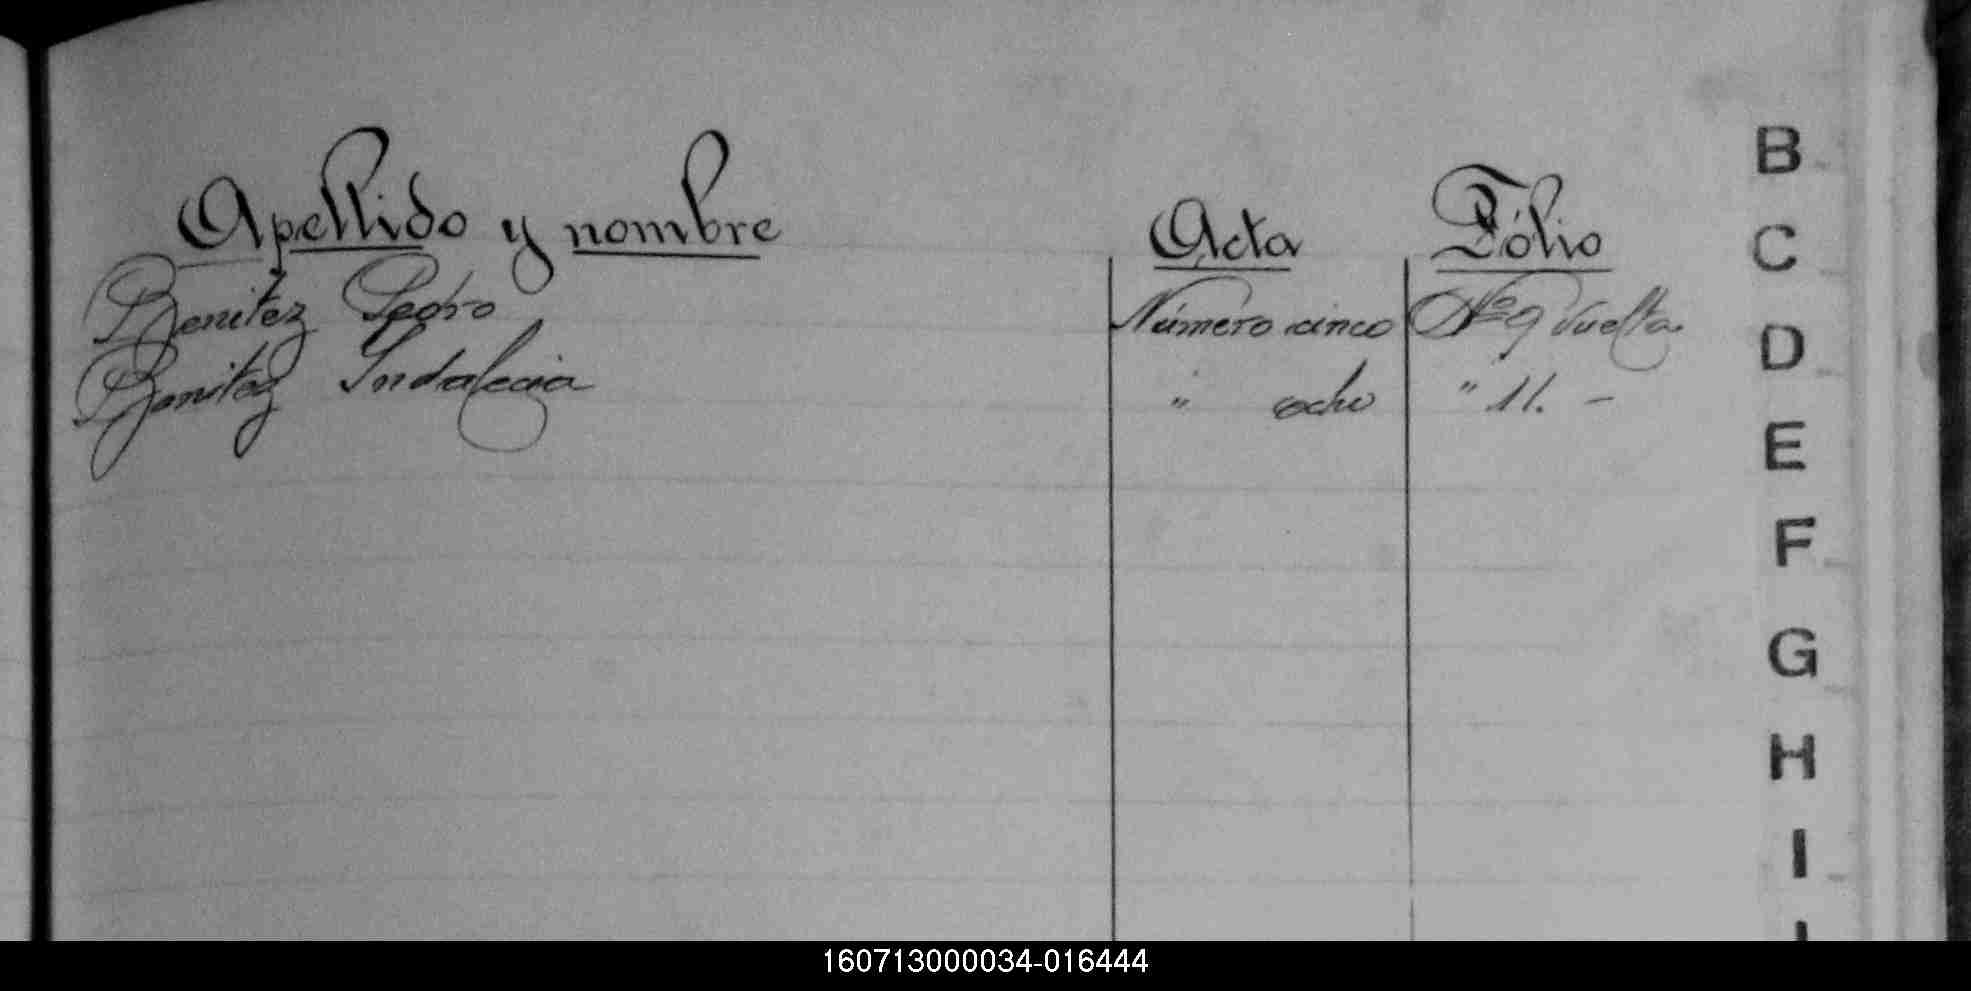 Apellido y nombre Acta Fólio
Benitez Pedro Número cinco Nº 9 vuelta.
Benitez Indalecia " ocho " 11. -
B
C
D
E
F
G
H
I
160713000034-016444